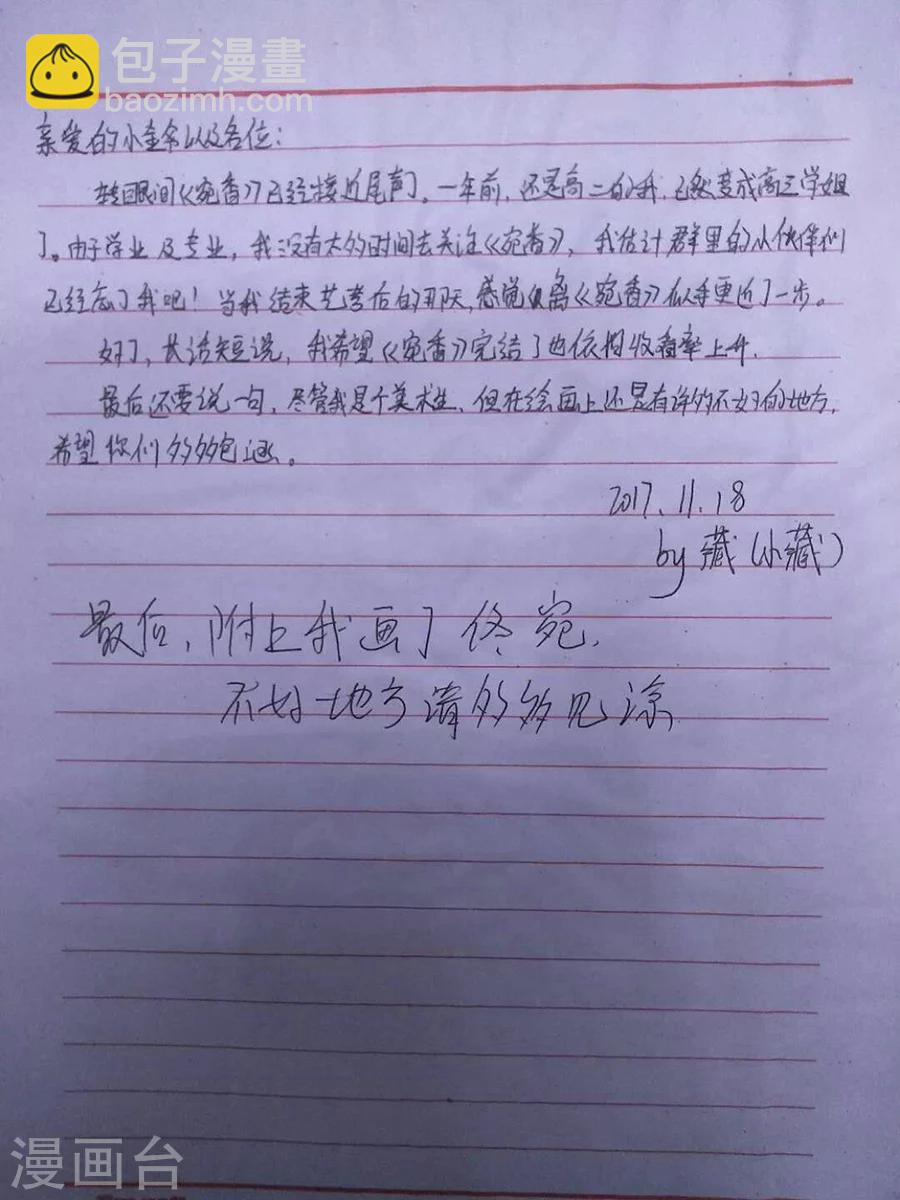 包子漫畫
baozimh.com
亲爱的小金爷以及各位：
转眼间《宛香》已经接近尾声了。一年前，还是高二的我，已然变成高三学姐
了。由于学业及专业，我没有太多时间去关注《宛香》，我估计群里的小伙伴们
已经忘了我吧！当我结束艺考后的那天，感觉距离《宛香》似乎更近了一步。
好了，长话短说，我希望《宛香》完结了也依旧收看率上升。
最后还要说一句，尽管我是个美术生，但在绘画上还是有许多不好的地方，
希望你们多多包涵。
2017.11.18
by 藏（小藏）
最后，附上我画了佟宛，
不好地方请多多见谅
漫画台